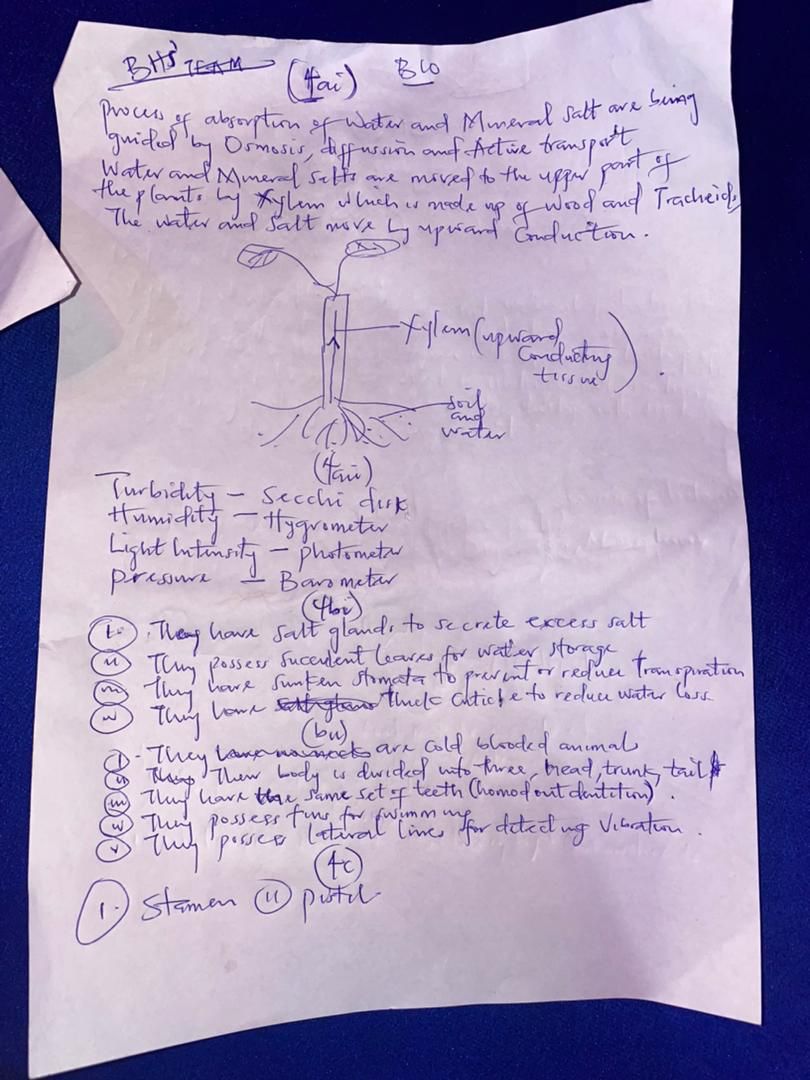 BHS TEAM (4ai) BIO
Process of absorption of Water and Mineral Salt are being
guided by Osmosis, diffussion and Active transport
Water and Mineral Salts are moved to the upper part of
the plants by Xylem which is made up of Wood and Tracheids
The water and Salt move by upward Conduction.
Xylem (upward
Conducting
tissue) .
soil
and
water
(4aii)
Turbidity – Secchi disk
Humidity – Hygrometer
Light Intensity – photometer
pressure – Barometer
(4bi)
(i) . They have salt glands to secrete excess salt
(ii) They possess succulent leaves for water storage
(iii) They have sunken stomata to prevent or reduce Transpiration
(iv) They have Thick cuticle to reduce water loss
(bii)
(i) . They are cold blooded animals
(ii) Their body is divided into three, head, trunk, tail
(iii) They have the same set of teeth (homodont dentition) .
(iv) They possess fins for swimming
(v) They possess lateral lines for detecting Vibration .
(4c)
(i.) Stamen (ii) pistil